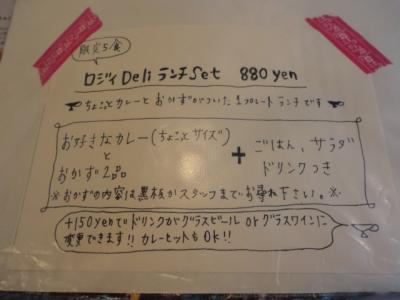 限定5食
ロジィ Deli ランチSet 880yen
ちょこっとカレーと おかずがついた 1プレート ランチです
お好きなカレー(ちょこっとサイズ)
と
おかず2品
+
ごはん、サラダ
ドリンクつき
※おかずの内容は黒板かスタッフまでお尋ね下さい。※
+150yenで ドリンクがグラスビール or グラスワインに
変更できます!! カレーセットも OK!!